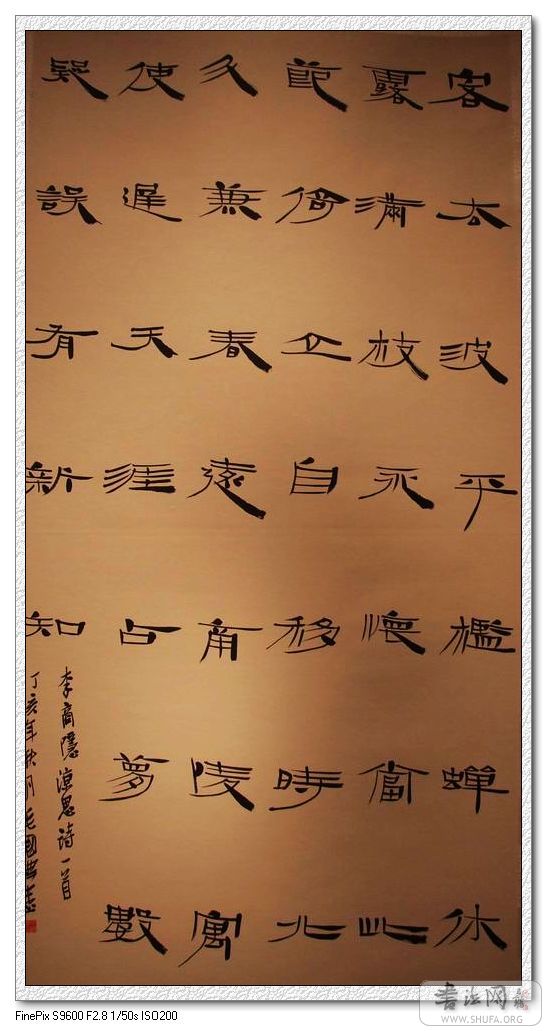 客去波平檻蟬休
露滿枝永懷當此
節倚立自移時北
斗兼春遠南陵寓
使遲天涯占夢數
疑誤有新知
李商隱涼思诗一首
丁亥年秋月毛國典書
FinePix S9600 F2.8 1/50s ISO200
书法网
WWW.SHUFA.ORG